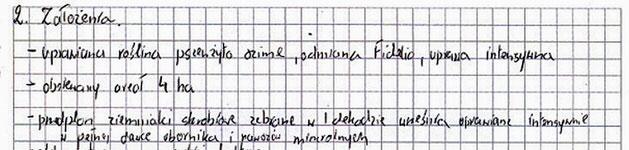 2. Założenia.
- uprawiana roślina pszenżyto ozime, odmiana Fidelio, uprawa intensywna
- obsiewany areał 4 ha
- przedplon ziemniaki skrobiowe zebrane w I dekadzie września uprawiane intensywnie
w pełnej dawce obornika i nawozów mineralnych